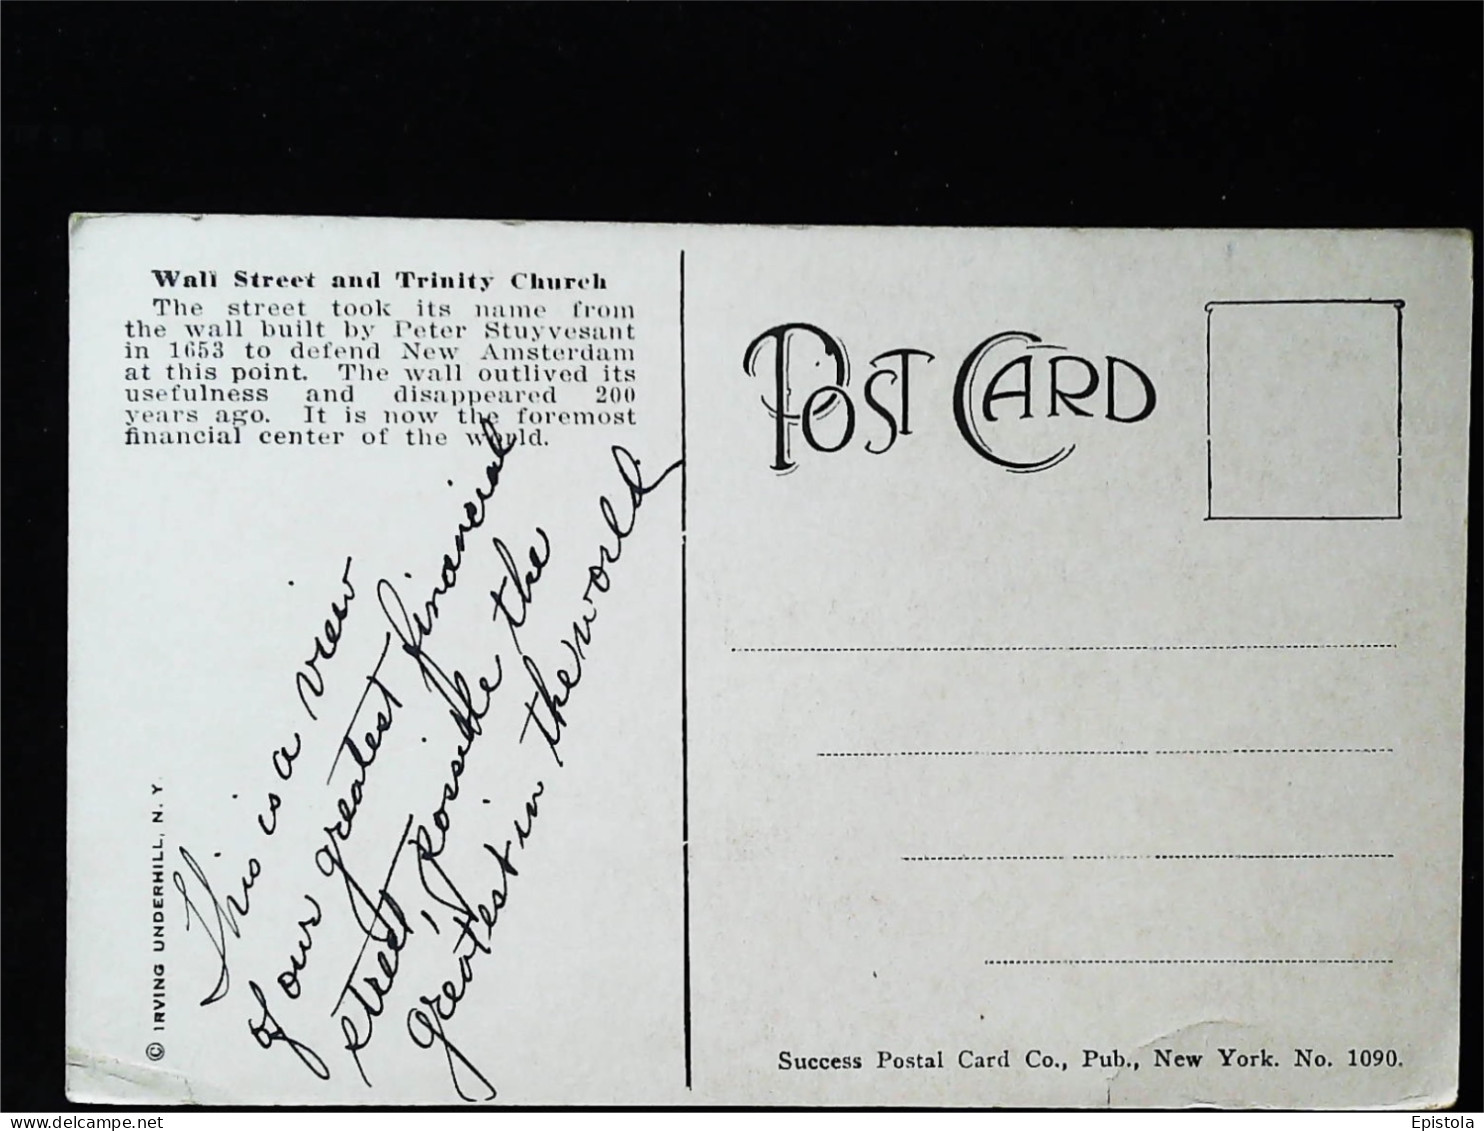 Wall Street and Trinity Church
The street took its name from
the wall built by Peter Stuyvesant
in 1653 to defend New Amsterdam
at this point. The wall outlived its
usefulness and disappeared 200
years ago. It is now the foremost
financial center of the world.
This is a view
of our greatest financial
street, possible the
greatest in the world
© IRVING UNDERHILL, N. Y.
POST CARD
Success Postal Card Co., Pub., New York. No. 1090.
delcampe.net
Epistola